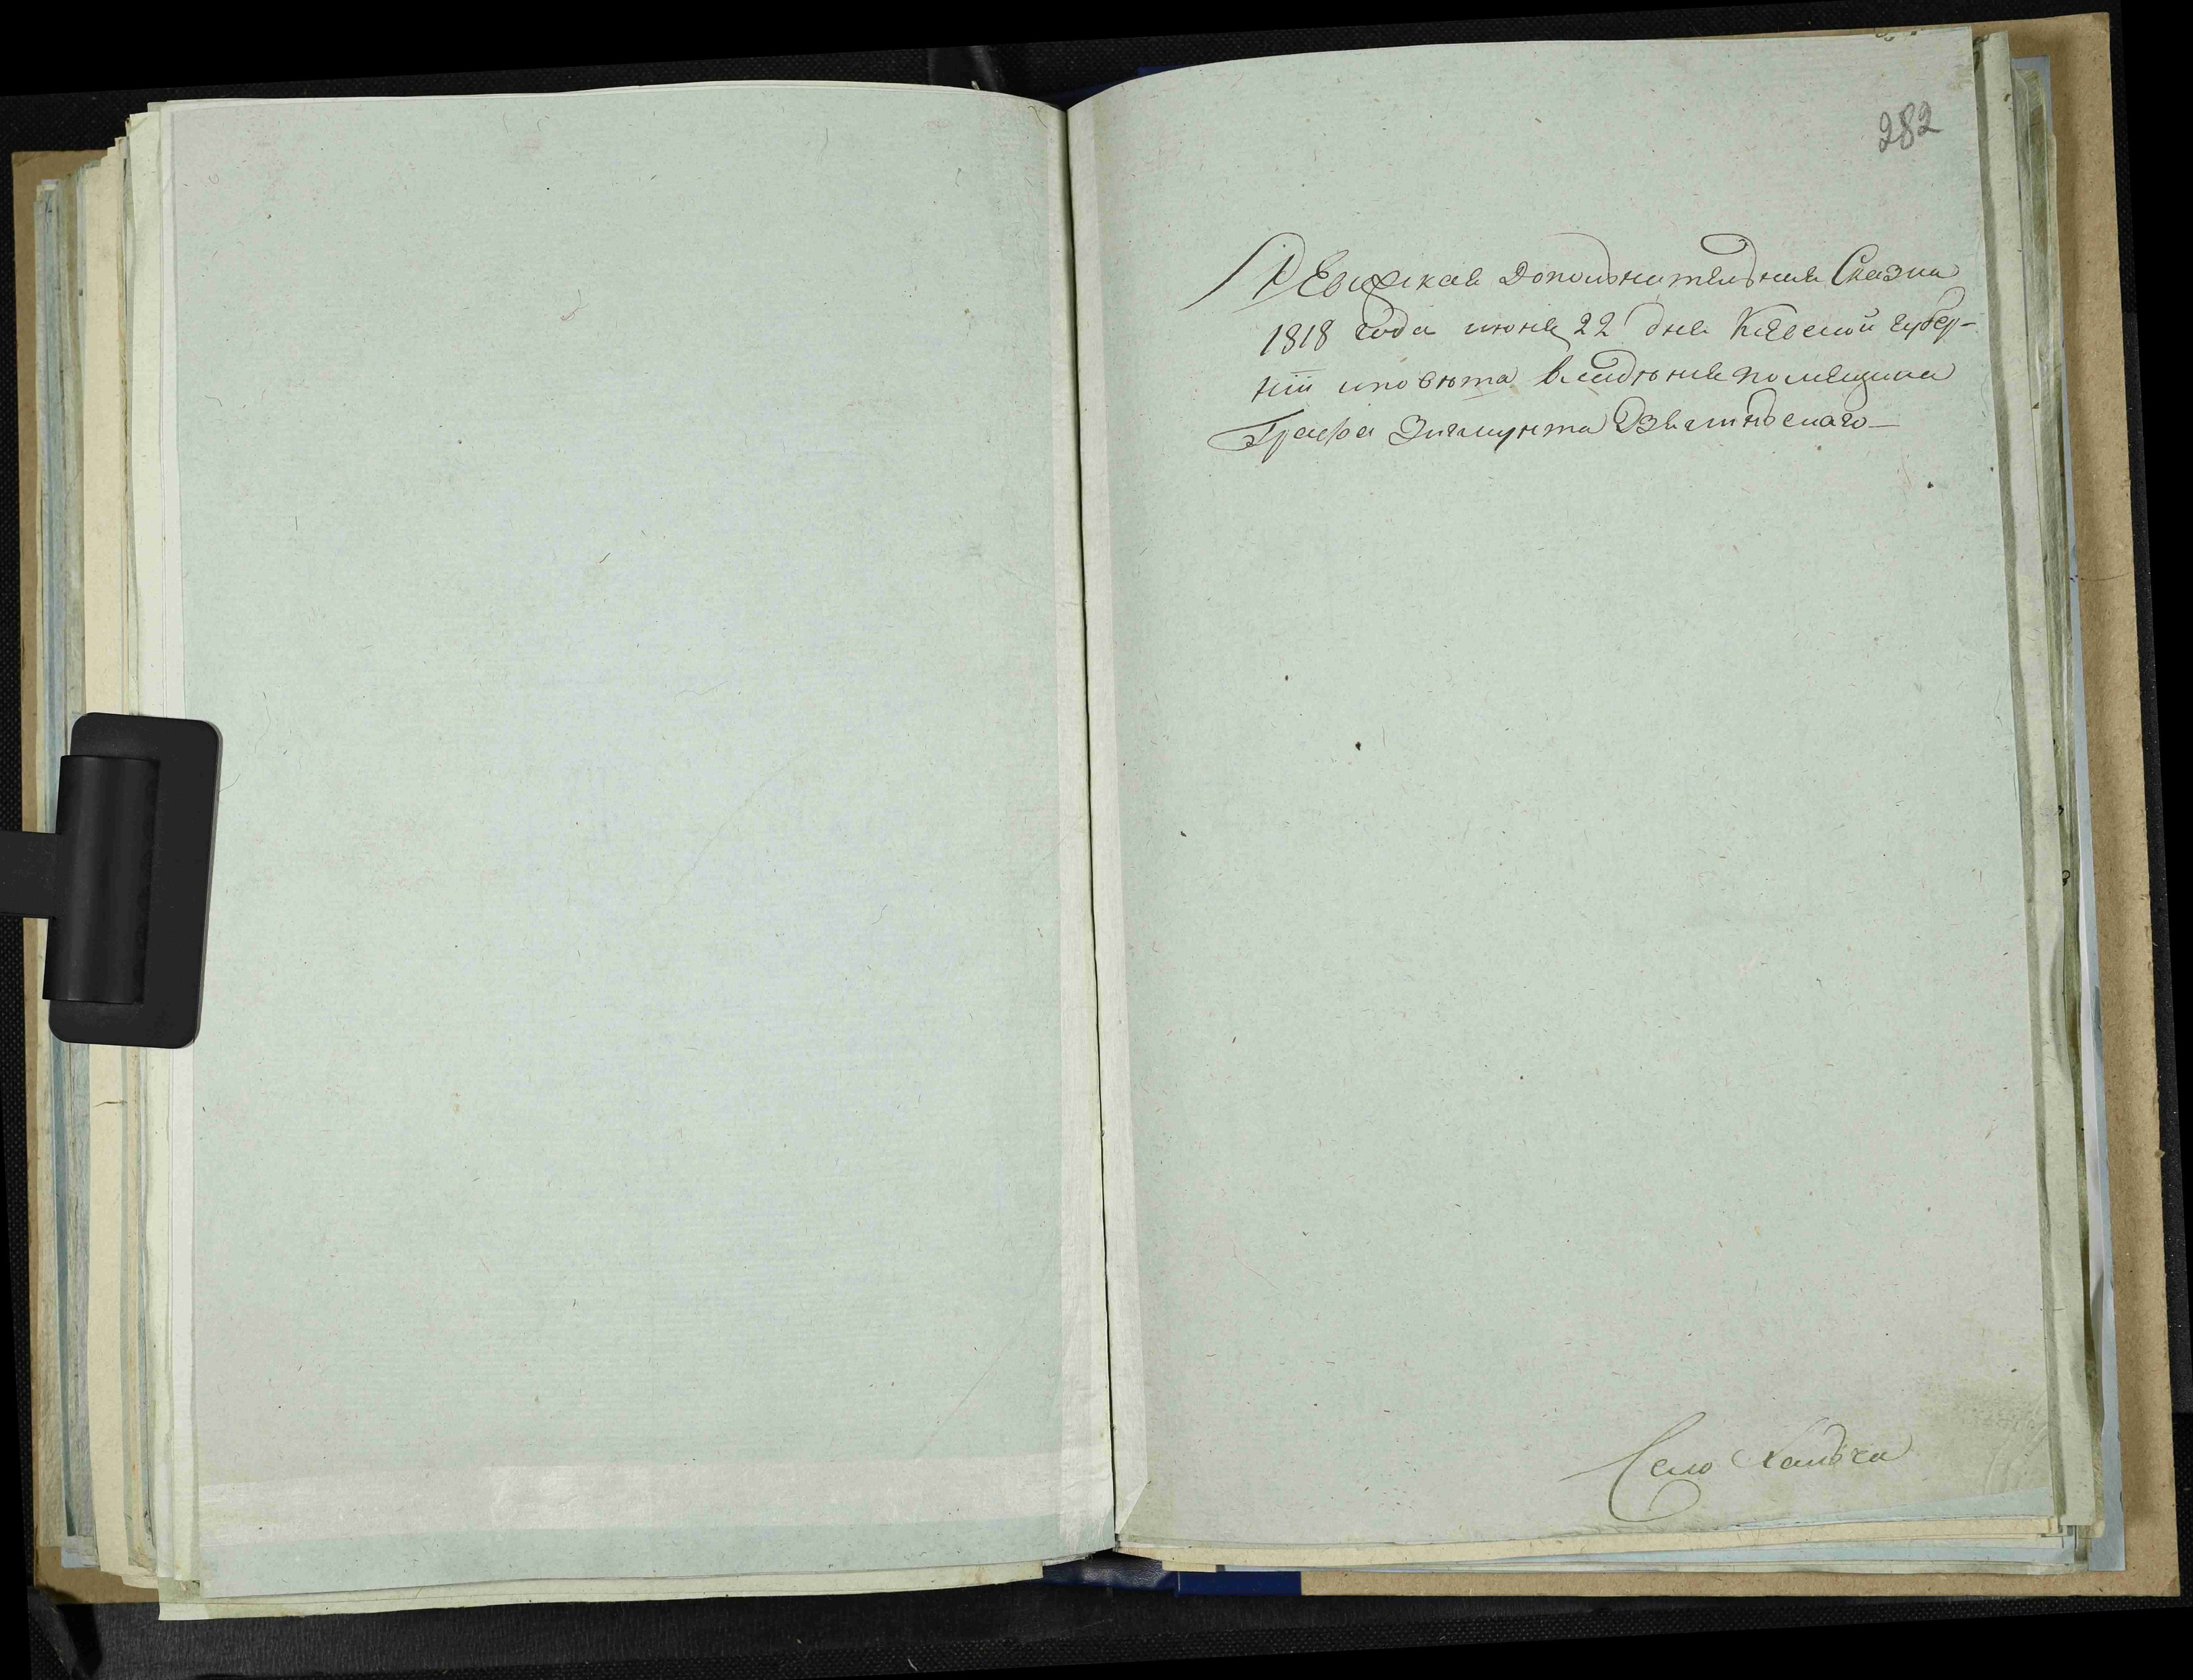 282
Ревизская дополнительная Сказка
1818 года июня 22 дня Киевской губер-
нии и повѣта владѣния помещика
Графа Зигмунта Дзялинского
Село Халѣча